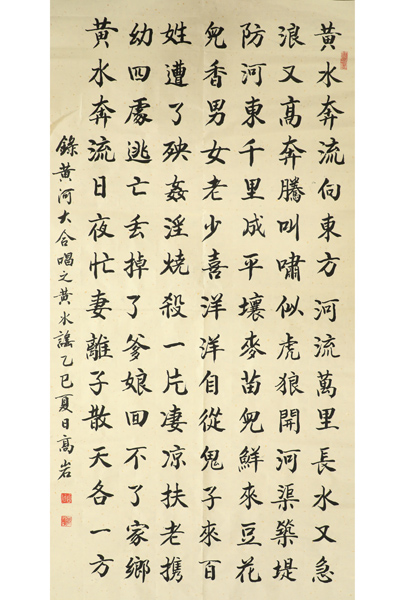 黄水奔流向東方河流萬里長水又急
浪又高奔騰叫嘯似虎狼開河渠築堤
防河東千里成平壤麥苗兒鮮來豆花
兒香男女老少喜洋洋自從鬼子來百
姓遭了殃姦淫燒殺一片凄凉扶老携
幼四處逃亡丢掉了爹娘回不了家鄉
黄水奔流日夜忙妻離子散天各一方
錄黄河大合唱之黄水謠乙巳夏日高岩